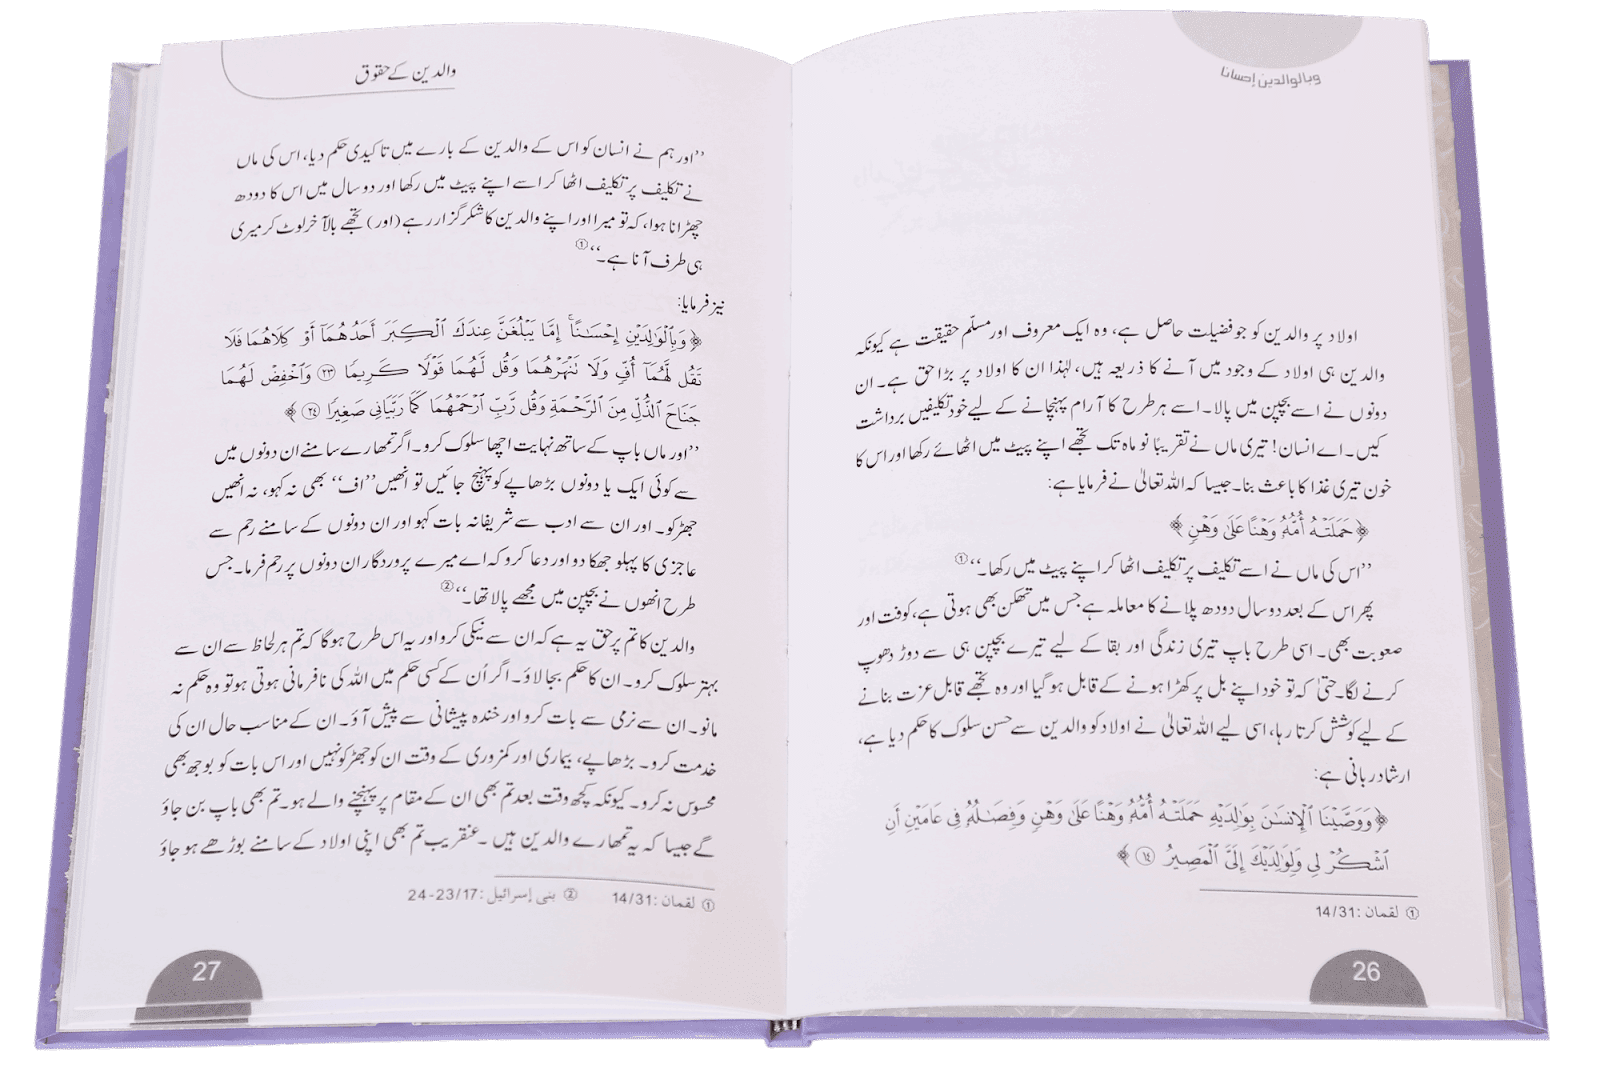 وبالوالدين إحسانا
اولاد پر والدین کو جو فضیلت حاصل ہے، وہ ایک معروف اور مسلّم حقیقت ہے کیونکہ
والدین ہی اولاد کے وجود میں آنے کا ذریعہ ہیں، لہٰذا ان کا اولاد پر بڑا حق ہے۔ ان
دونوں نے اسے بچپن میں پالا۔ اسے ہر طرح کا آرام پہنچانے کے لیے خود تکلیفیں برداشت
کیں۔ اے انسان! تیری ماں نے تقریبًا نو ماہ تک تجھے اپنے پیٹ میں اٹھائے رکھا اور اس کا
خون تیری غذا کا باعث بنا۔ جیسا کہ اللہ تعالیٰ نے فرمایا ہے:
﴿حَمَلَتْهُ أُمُّهُ وَهْنًا عَلَىٰ وَهْنٍ﴾
’’اس کی ماں نے اسے تکلیف پر تکلیف اٹھا کر اپنے پیٹ میں رکھا۔‘‘ ①
پھر اس کے بعد دو سال دودھ پلانے کا معاملہ ہے جس میں تھکن بھی ہوتی ہے، کوفت اور
صعوبت بھی۔ اسی طرح باپ تیری زندگی اور بقا کے لیے تیرے بچپن ہی سے دوڑ دھوپ
کرنے لگا۔ حتیٰ کہ تو خود اپنے بل پر کھڑا ہونے کے قابل ہو گیا اور وہ تجھے قابل عزت بنانے
کے لیے کوشش کرتا رہا، اسی لیے اللہ تعالیٰ نے اولاد کو والدین سے حسن سلوک کا حکم دیا ہے،
ارشاد ربانی ہے:
﴿وَوَصَّيْنَا الْإِنسَٰنَ بِوَٰلِدَيْهِ حَمَلَتْهُ أُمُّهُ وَهْنًا عَلَىٰ وَهْنٍ وَفِصَٰلُهُ فِي عَامَيْنِ أَنِ
اشْكُرْ لِي وَلِوَٰلِدَيْكَ إِلَيَّ الْمَصِيرُ ١٤﴾
① لقمان: 14/31
26
والدین کے حقوق
’’اور ہم نے انسان کو اس کے والدین کے بارے میں تاکیدی حکم دیا، اس کی ماں
نے تکلیف پر تکلیف اٹھا کر اسے اپنے پیٹ میں رکھا اور دو سال میں اس کا دودھ
چھڑانا ہوا، کہ تو میرا اور اپنے والدین کا شکر گزار رہے (اور) تجھے بالآخر لوٹ کر میری
ہی طرف آنا ہے۔‘‘ ①
نیز فرمایا:
﴿وَبِالْوَٰلِدَيْنِ إِحْسَٰنًا ۚ إِمَّا يَبْلُغَنَّ عِندَكَ الْكِبَرَ أَحَدُهُمَآ أَوْ كِلَاهُمَا فَلَا
تَقُل لَّهُمَآ أُفٍّ وَلَا تَنْهَرْهُمَا وَقُل لَّهُمَا قَوْلًا كَرِيمًا ٢٣ وَاخْفِضْ لَهُمَا
جَنَاحَ الذُّلِّ مِنَ الرَّحْمَةِ وَقُل رَّبِّ ارْحَمْهُمَا كَمَا رَبَّيَانِي صَغِيرًا ٢٤﴾
’’اور ماں باپ کے ساتھ نہایت اچھا سلوک کرو۔ اگر تمھارے سامنے ان دونوں میں
سے کوئی ایک یا دونوں بڑھاپے کو پہنچ جائیں تو انھیں ’’اف‘‘ بھی نہ کہو، نہ انھیں
جھڑکو۔ اور ان سے ادب سے شریفانہ بات کہو اور ان دونوں کے سامنے رحم سے
عاجزی کا پہلو جھکا دو اور دعا کرو کہ اے میرے پروردگار ان دونوں پر رحم فرما۔ جس
طرح انھوں نے بچپن میں مجھے پالا تھا۔‘‘ ②
والدین کا تم پر حق یہ ہے کہ ان سے نیکی کرو اور یہ اس طرح ہوگا کہ تم ہر لحاظ سے ان سے
بہتر سلوک کرو۔ ان کا حکم بجا لاؤ۔ اگر اُن کے کسی حکم میں اللہ کی نافرمانی ہوتی ہو تو وہ حکم نہ
مانو۔ ان سے نرمی سے بات کرو اور خندہ پیشانی سے پیش آؤ۔ ان کے مناسب حال ان کی
خدمت کرو۔ بڑھاپے، بیماری اور کمزوری کے وقت ان کو جھڑکو نہیں اور اس بات کو بوجھ بھی
محسوس نہ کرو۔ کیونکہ کچھ وقت بعد تم بھی ان کے مقام پر پہنچنے والے ہو۔ تم بھی باپ بن جاؤ
گے جیسا کہ یہ تمھارے والدین ہیں۔ عنقریب تم بھی اپنی اولاد کے سامنے بوڑھے ہو جاؤ
① لقمان: 14/31 ② بنی إسرائیل: 24-23/17
27